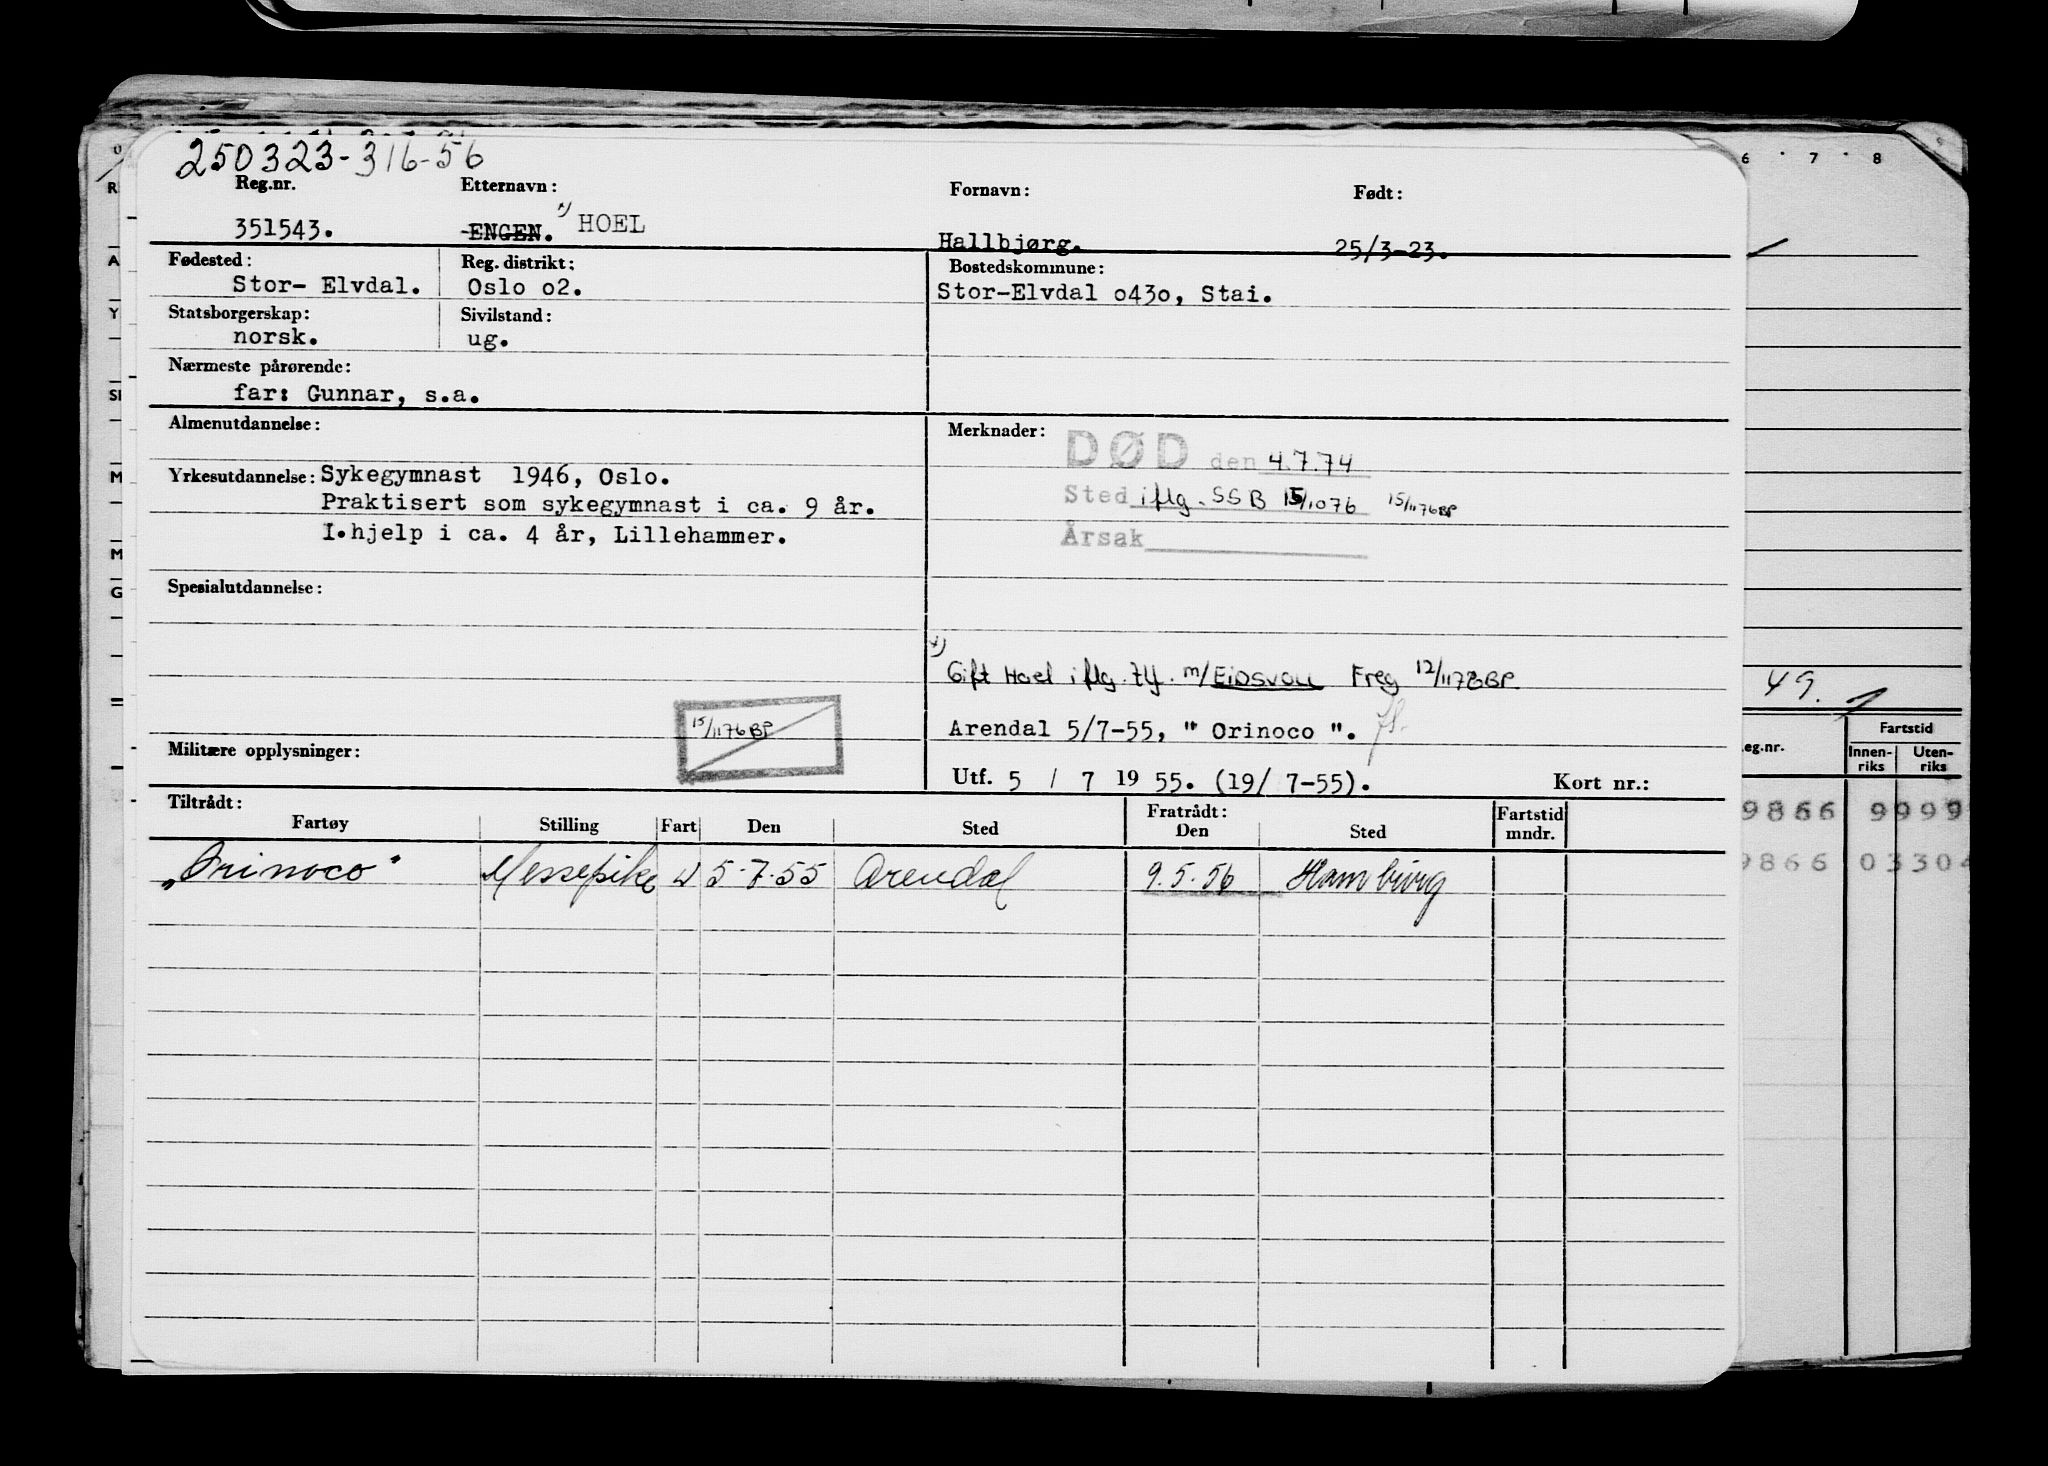 250323-316-56
Reg.nr. Etternavn: Fornavn: Født:
351543. ENGEN. x) HOEL Hallbjørg. 25/3-23.
Fødested: Reg. distrikt: Bostedskommune:
Stor- Elvdal. Oslo o2. Stor-Elvdal o43o, Stai.
Statsborgerskap: Sivilstand:
norsk. ug.
Nærmeste pårørende:
far: Gunnar, s.a.
Almenutdannelse: Merknader:
DØD den 4.7.74
Yrkesutdannelse: Sykegymnast 1946, Oslo.
Sted iflg. SSB 15/1076 15/1176 BP
Praktisert som sykegymnast i ca. 9 år.
I.hjelp i ca. 4 år, Lillehammer.
Årsak
Spesialutdannelse:
x)
Gift Hoel iflg. tlf. m/EIDSVOLL Freg 12/1176 BP
15/1176 BP
Arendal 5/7-55, " Orinoco ".
Militære opplysninger:
Utf. 5 / 7 19 55. (19/ 7-55). Kort nr.:
Tiltrådt: Fratrådt: Fartstid
Fartøy Stilling Fart Den Sted Den Sted mndr.
„Orinoco" Messepike U 5-7-55 Arendal 9.5.56 Hamburg
6 7 8
49.
Fartstid
eg.nr. Innen- Uten-
riks riks
9866 9999
9866 0330
R
A
Y
SI
M
M
G